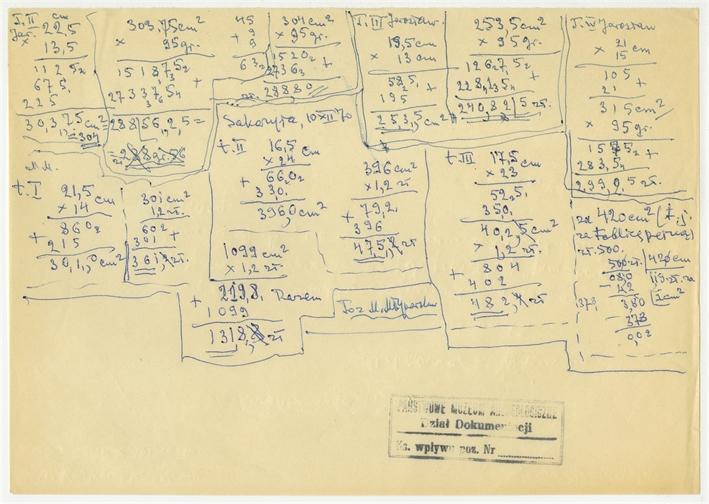 T. II
cm
Jar. 22,5
× 13,5
1125
675
225
303,75 cm²
= 304
303,75 cm²
× 95 gr.
151875
273375
28856,2,5 =
= 288 gr. 56
45
+ 9
9
63
304 cm²
× 95 gr.
1520
2736
28880
T. III Jarosław
19,5 cm
× 13 cm
58,5
195
253,5 cm²
253,5 cm
× 95 gr.
1267,5
2281,5
240,82,5 zł.
T. IV Jarosław
21
× 15 cm
105
21 +
315 cm²
× 95 gr.
1575 +
283,5
299,2,5 zł.
M.M.
t. I 21,5 cm
× 14
860
+ 215
301,0 cm²
301 cm²
1,2 zł.
602
301 +
361,2 zł.
10 XII 70
t. II 16,5 cm
× 24
660
+ 330
396,0 cm²
396 cm²
× 1,2 zł
+ 79,2
396
475,2 zł.
t. III 17,5 cm
× 23
52,5
350
402,5 cm²
× 1,2 zł.
804
+ 402
482,4 zł
za 420 cm² (t.j.
za tablicę pełną)
zł. 500.
500 zł. | 420 cm
080
42
378 3,80
378
0,02
1 cm²
1099 cm²
× 1,2 zł.
+ 219,8 Razem
1099
1318,8 zł
PAŃSTWOWE MUZEUM ARCHEOLOGICZNE
Dział Dokumentacji
Ks. wpływu poz. Nr